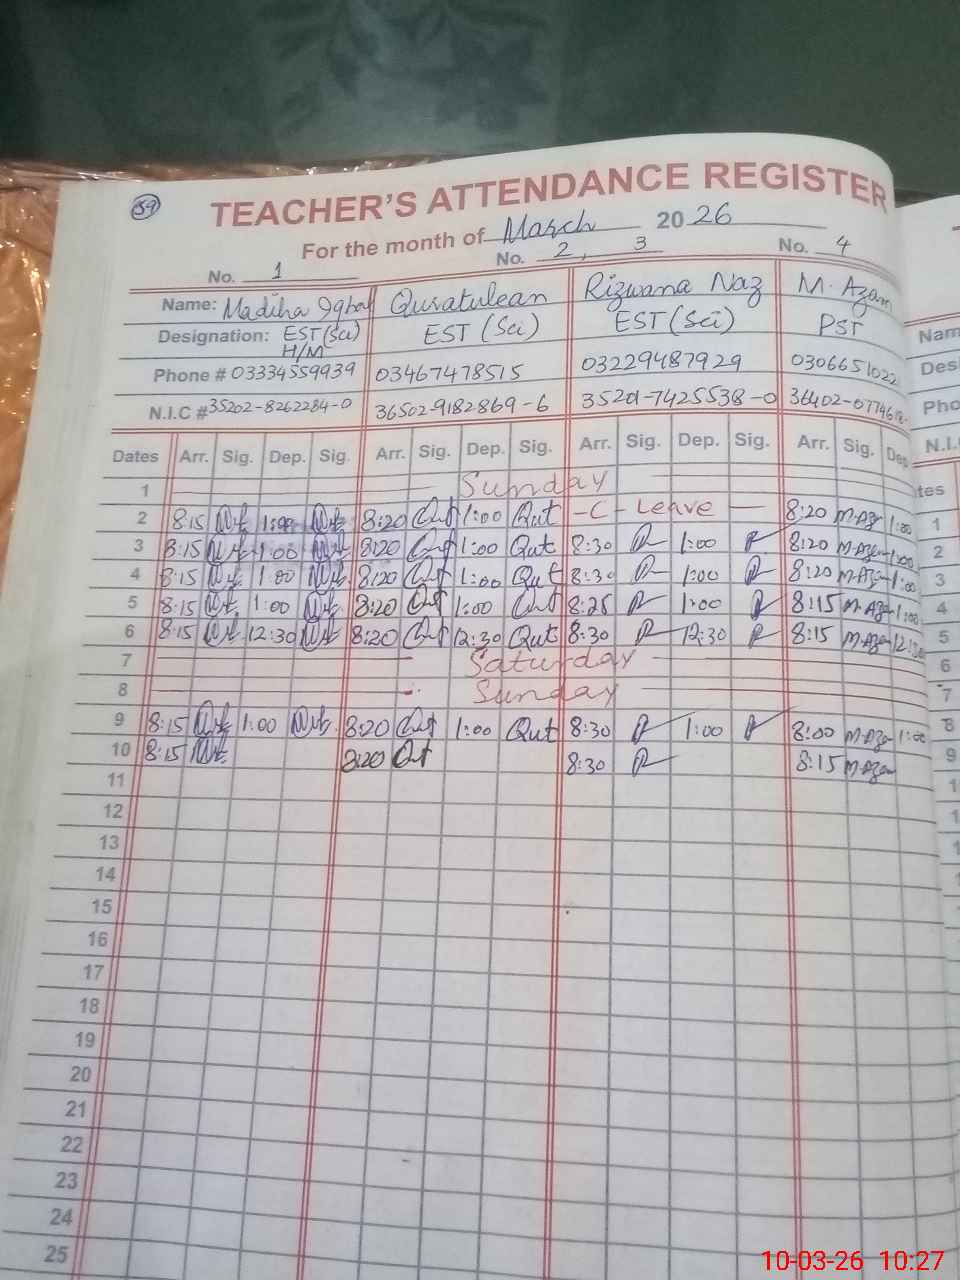 59
TEACHER'S ATTENDANCE REGISTER
For the month of March 2026
No. 1 No. 2, 3 No. 4
Name: Madiha Iqbal Quratulean Rizwana Naz M. Azam
Designation: EST (Sci) EST (Sci) EST (Sci) PST
H/M
Phone # 03334559939 03467478515 03229487929 0306651022
N.I.C # 35202-8262284-0 36502-9182869-6 35201-7425538-0 36402-0774618-
Dates Arr. Sig. Dep. Sig. Arr. Sig. Dep. Sig. Arr. Sig. Dep. Sig. Arr. Sig. Dep
1 Sunday
2 8:15 1:00 8:20 Qut 1:00 Qut -C- Leave — 8:20 M.Azam 1:00
3 8:15 1:00 8:20 Qut 1:00 Qut 8:30 1:00 8:20 M.Azam 1:00
4 8:15 1:00 8:20 Qut 1:00 Qut 8:30 1:00 8:20 M.Azam 1:00
5 8:15 1:00 8:20 Qut 1:00 Qut 8:25 1:00 8:15 M.Azam 1:00
6 8:15 12:30 8:20 Qut 12:30 Qut 8:30 12:30 8:15 M.Azam 12:30
7 Saturday
8 Sunday
9 8:15 1:00 8:20 Qut 1:00 Qut 8:30 1:00 8:00 M.Azam 1:00
10 8:15 8:20 Qut 8:30 8:15 M.Azam
11
12
13
14
15
16
17
18
19
20
21
22
23
24
25
Nam
Desi
Pho
N.I.
tes
1
2
3
4
5
6
7
8
9
10-03-26 10:27